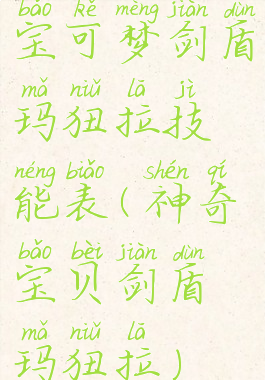 bǎo kě mèng jiàn dùn
宝可梦剑盾
mǎ niǔ lā jì
玛狃拉技
néng biǎo shén qí
能表(神奇
bǎo bèi jiàn dùn
宝贝剑盾
mǎ niǔ lā
玛狃拉)